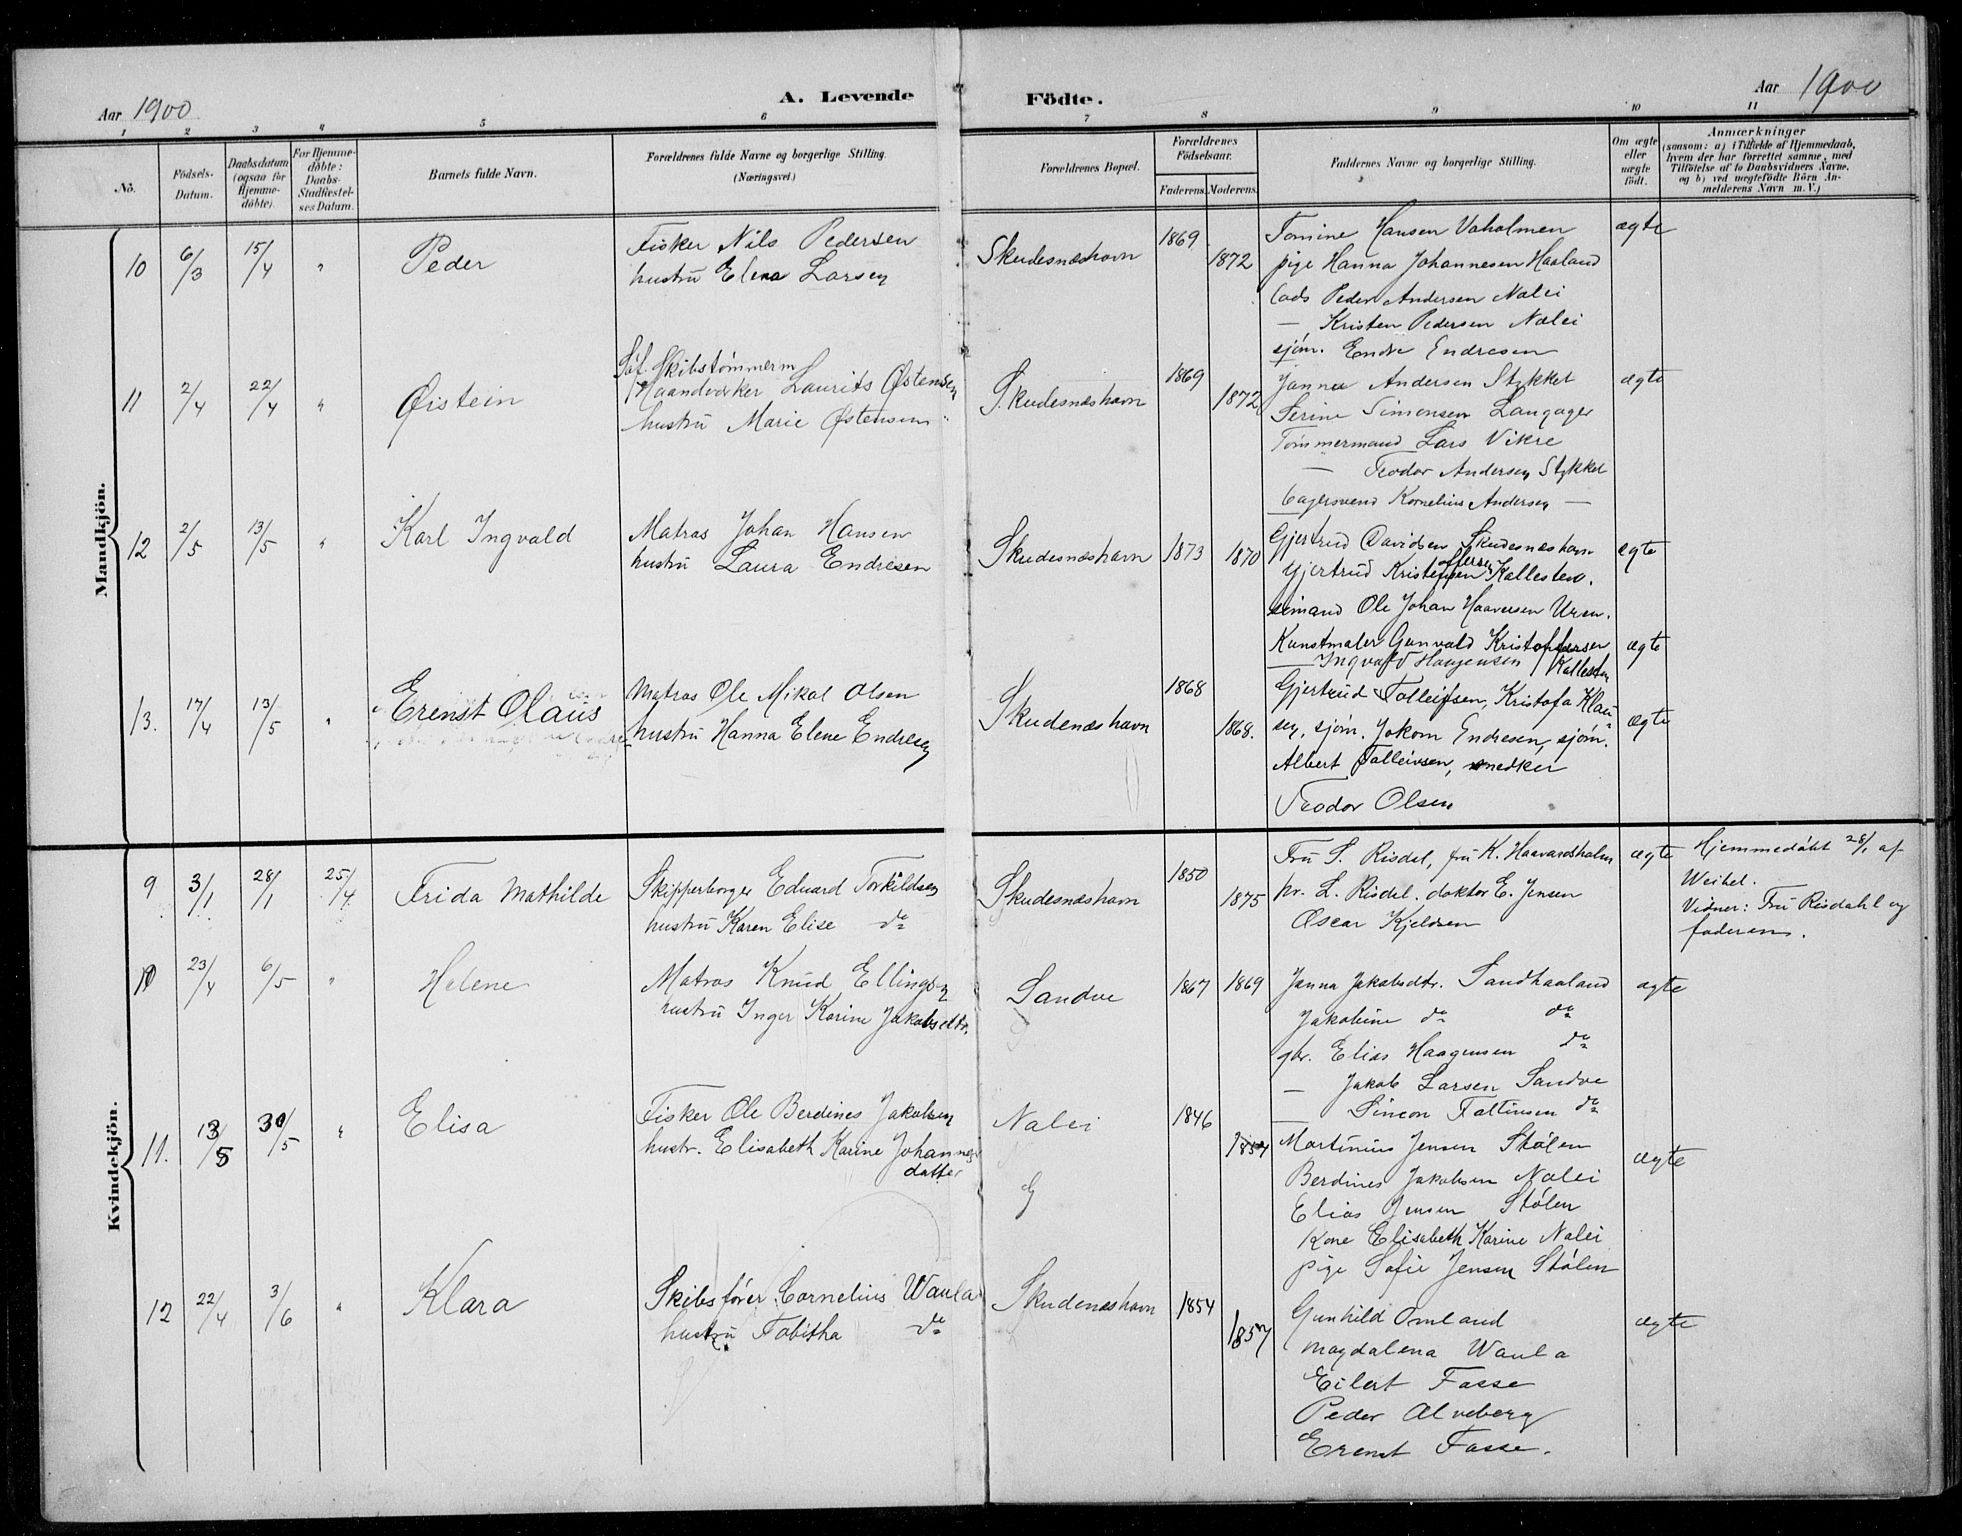 Aar 1900
A. Levende Födte.
Aar 1900
1 2 3 4 5 6 7 8 9 10 11
No.
Födsels-Datum.
Daabsdatum (ogsaa för Hjemme-döbte).
For Hjemme-döbte: Daabs-Stadfæstel-ses Datum.
Barnets fulde Navn.
Forældrenes fulde Navne og borgerlige Stilling. (Næringsvei.)
Forældrenes Bopæl.
Forældrenes Födselsaar.
Faderens. Moderens.
Faddernes Navne og borgerlige Stilling.
Om ægte eller uægte födt.
Anmærkninger
(saasom: a) i Tilfælde af Hjemmedaab,
hvem der har forrettet samme, med
Tilföielse af to Daabsvidners Navne,
og b) ved uægtefödte Börn An-
melderens Navn m. V.)
Mandkjön.
10 6/3 15/4 " Peder
Fisker Nils Pedersen
hustru Elena Larsen
Skudesnæshavn 1869 1872
Tomine Hansen Vaholmen
pige Hanna Johannesen Haaland
Cads Peder Andersen Nalei
— Kristen Pedersen Nalei
sjøm. Endre Endresen
ægte
11 2/4 22/4 " Øistein
Søf. Skibstømmerm
Haandværker Laurits Østensen
hustru Marie Østensen
Skudesnæshavn 1869 1872
Janna Andersen Stykket
Serine Simonsen Langager
Tømmermand Lars Vikre
— Teodor Andersen Stykket
Cagersvend Kornelius Andersen —
ægte
12 2/5 13/5 " Karl Ingvald
Matros Johan Hansen
hustru Laura Endresen
Skudesnæshavn 1873 1870
Gjertrud Davidsen Skudesnæshavn
offersen
Gjertrud Kristensen Kallesten.
sømand Ole Johan Haaversen Uren.
Kunstmaler Gunvald Kristoffersen
— Ingvald Haagensen Kallesten
ægte
ægte
13. 17/4 13/5 " Erenst Olaus
Matros Ole Mikal Olsen
hustru Hanna Elene Endresen
Skudenæshavn 1868 1868.
Gjertrud Tolleifsen, Kristofa Klau-
sen, sjøm. Jokom Endresen, sjøm.
Albert Tolleivsen, snedker
Teodor Olsen
ægte
Kvindekjön.
9 3/1 28/1 25/4 Frida Mathilde
Skipperborger Eduard Torkildsen
hustru Karen Elise do
Skudesnæshavn 1850 1875
Fru S. Risdal, fru K. Haavardsholm
hr. L. Risdal. doktor E. Jensen
Oscar Kjeldsen
ægte
Hjemmedøbt 28/1 af
Weibel.
Vidner: Fru Risdahl og
faderen.
10 23/4 6/5 " Helene
Matros Knud Ellingsen
hustru Inger Karine Jakobsdtr.
Sandve 1867 1869
Janna Jakobsdtr. Sandhaaland
Jakobine do do
gbr. Elias Haagensen do
— Jakob Larsen Sandve
— Simon Faltinsen do
ægte
11. 13/5 30/5 " Elisa
Fisker Ole Berdines Jakobsen
hustr. Elisabeth Karine Johannes-
datter
Nalei 1846 1857
Martinius Jensen Stølen
Berdines Jakobsen Nalei
Elias Jensen Stølen
Kone Elisabeth Karine Nalei
pige Sofie Jensen Stølen
ægte
12 22/4 3/6 " Klara
Skibsfører Cornelius Waula
hustru Tabitha do
Skudenæshavn 1854 1857
Gunhild Omland
Magdalena Waula
Eilert Fasse
Peder Alveberg
Erenst Fasse.
ægte